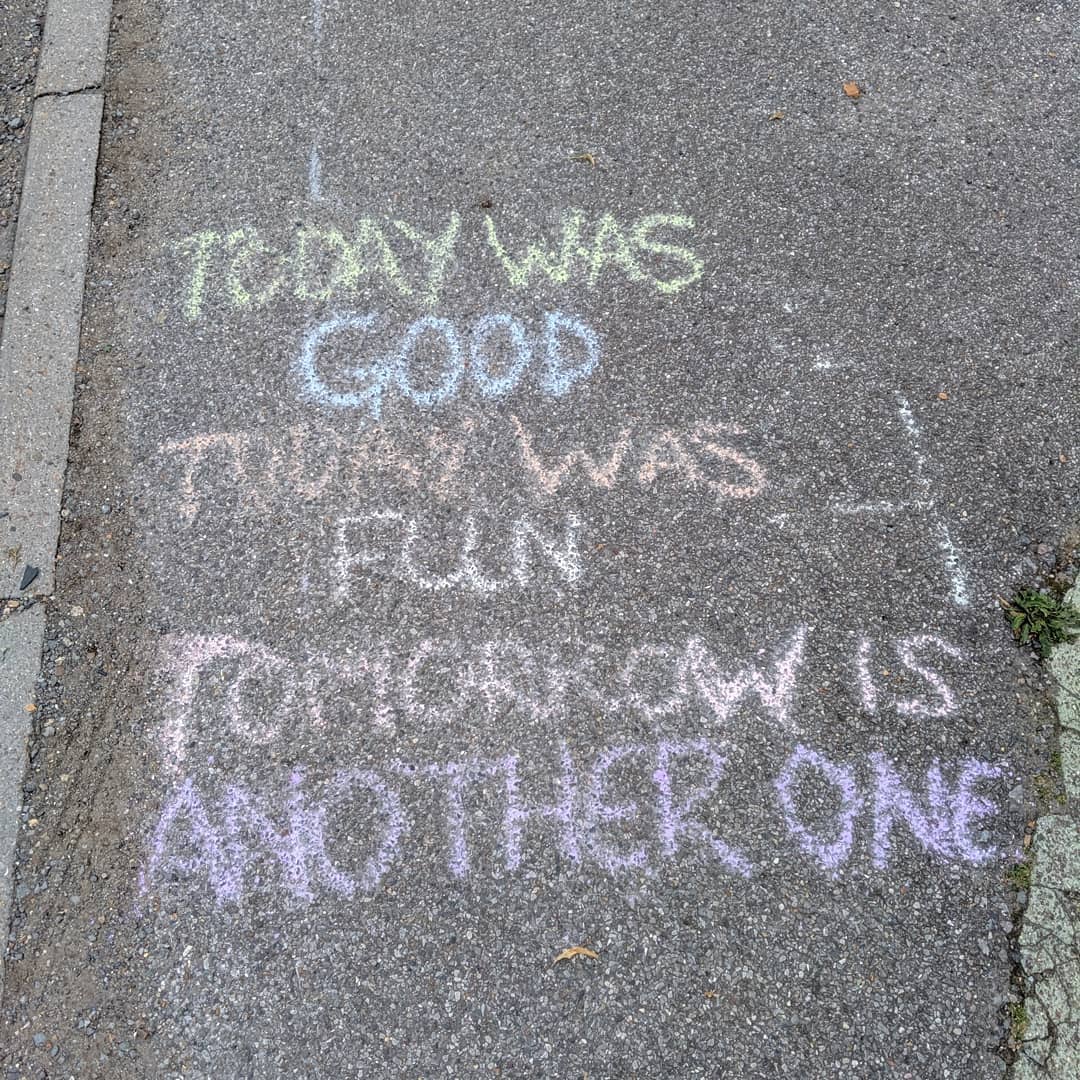 TODAY WAS
GOOD
TODAY WAS
FUN
TOMORROW IS
ANOTHER ONE